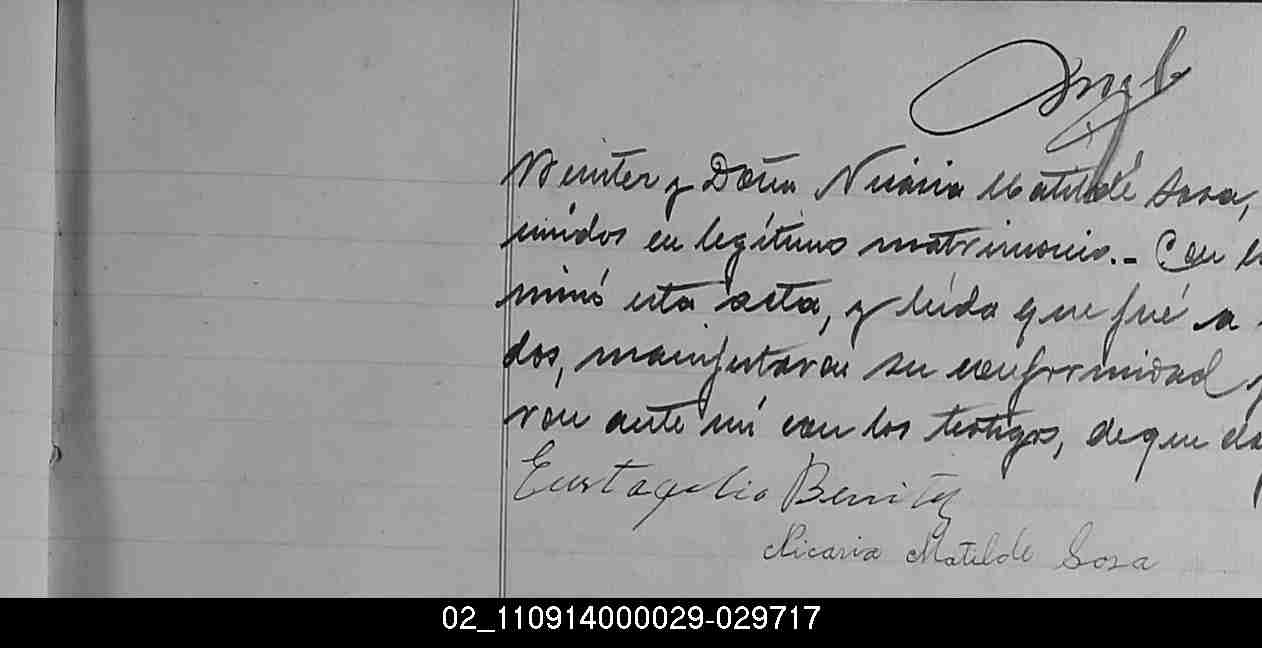 Benitez y Doña Nicaria Matilde Sosa,
unidos en legítimo matrimonio.- Con
minó esta acta, y leída que fué a
dos, manifestaron su conformidad
ron ante mí con los testigos, de que
Eustaquelio Benitez
Nicaria Matilde Sosa
02_110914000029-029717